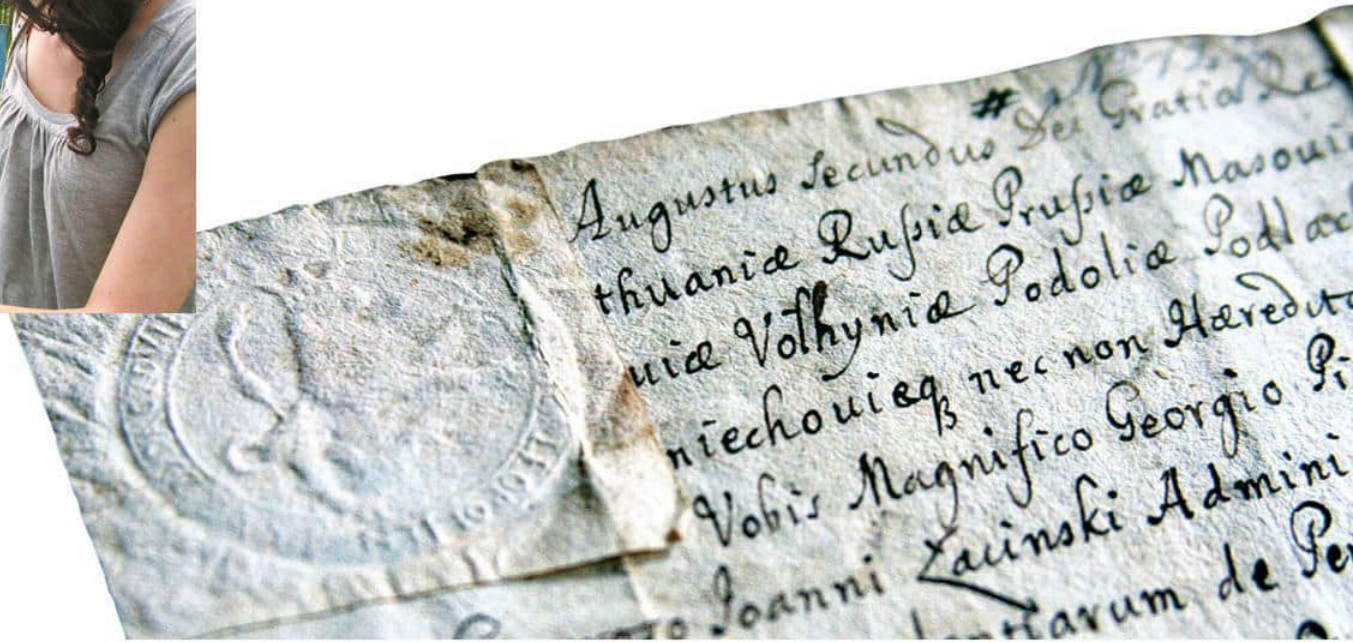 #
Augustus Secundus Dei Gratia Rex
thuaniæ Rußiæ Prußiæ Masoui
uiæ Volhyniæ Podoliæ Podlac
niechouieqꝫ nec non Hæredita
Vobis Magnifico Georgio Pi
Joanni Zacinski Admini
tiarum de Per